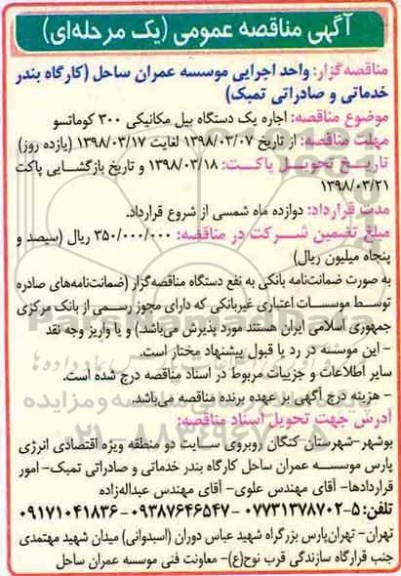 آگهی مناقصه عمومی (یک مرحله‌ای)
مناقصه‌گزار: واحد اجرایی موسسه عمران ساحل (کارگاه بندر
خدماتی و صادراتی تمبک)
موضوع مناقصه: اجاره یک دستگاه بیل مکانیکی ۳۰۰ کوماتسو
مهلت مناقصه: از تاریخ ۱۳۹۸/۰۳/۰۷ لغایت ۱۳۹۸/۰۳/۱۷ (یازده روز)
تاریخ تحویل پاکت: ۱۳۹۸/۰۳/۱۸ و تاریخ بازگشایی پاکت
۱۳۹۸/۰۳/۲۱
مدت قرارداد: دوازده ماه شمسی از شروع قرارداد.
مبلغ تضمین شرکت در مناقصه: ۳۵۰/۰۰۰/۰۰۰ ریال (سیصد و
پنجاه میلیون ریال)
به صورت ضمانت‌نامه بانکی به نفع دستگاه مناقصه‌گزار (ضمانت‌نامه‌های صادره
توسط موسسات اعتباری غیربانکی که دارای مجوز رسمی از بانک مرکزی
جمهوری اسلامی ایران هستند مورد پذیرش می‌باشد.) و یا واریز وجه نقد
- این موسسه در رد یا قبول پیشنهاد مختار است.
سایر اطلاعات و جزییات مربوط در اسناد مناقصه درج شده است.
- هزینه درج آگهی بر عهده برنده مناقصه می‌باشد.
آدرس جهت تحویل اسناد مناقصه:
بوشهر-شهرستان کنگان روبروی سایت دو منطقه ویژه اقتصادی انرژی
پارس موسسه عمران ساحل کارگاه بندر خدماتی و صادراتی تمبک- امور
قراردادها- آقای مهندس علوی- آقای مهندس عبداله‌زاده
تلفن: ۵-۰۷۷۳۱۳۷۸۷۰۲ -۰۹۳۸۷۶۴۶۵۴۷ -۰۹۱۷۱۰۴۱۸۳۶
تهران- تهران‌پارس بزرگراه شهید عباس دوران (استخوانی) میدان شهید مهتمدی
جنب قرارگاه سازندگی قرب نوح(ع)- معاونت فنی موسسه عمران ساحل